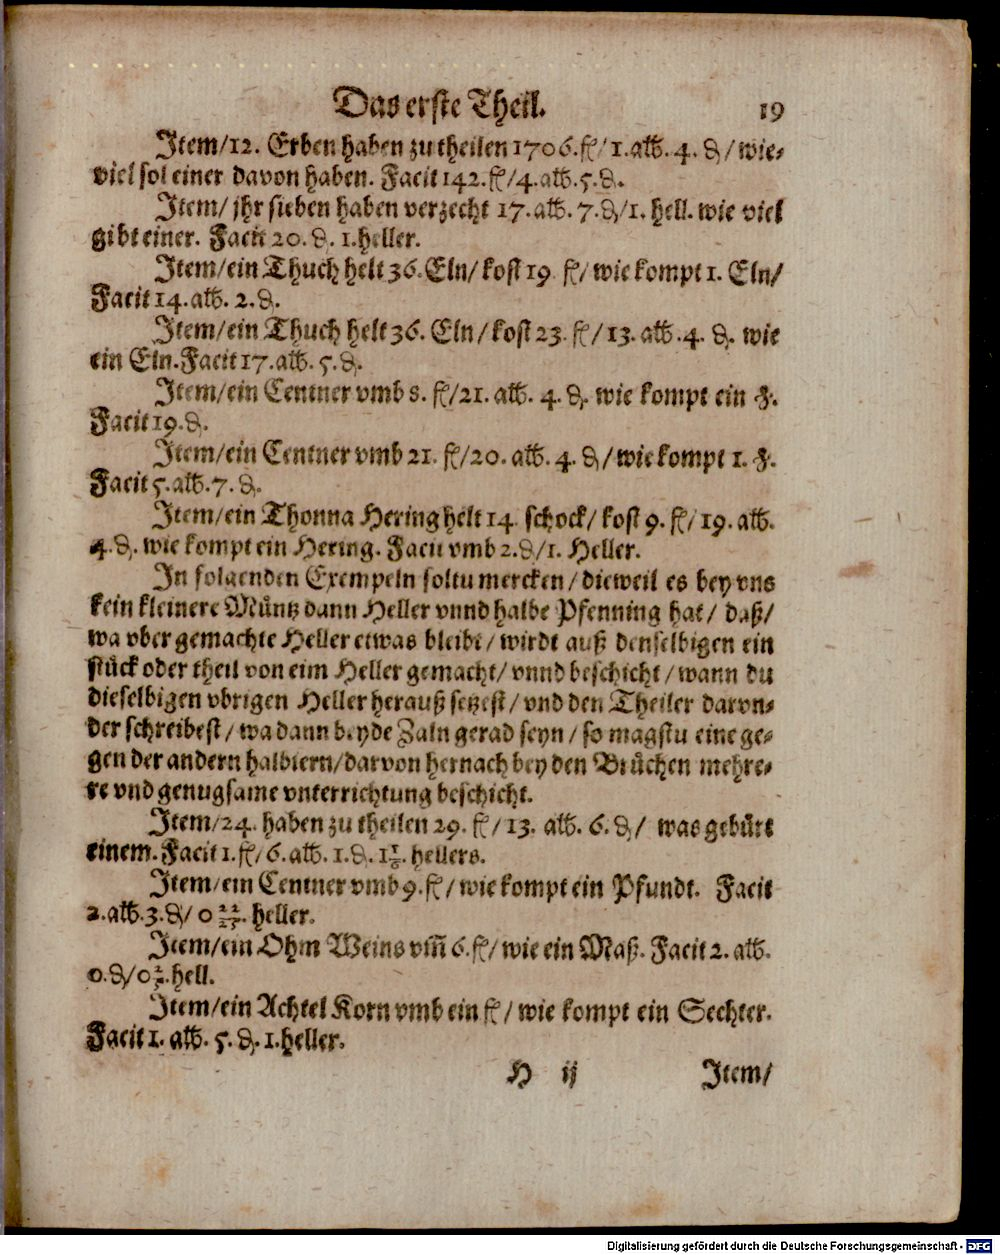 Das erste Theil. 19
Item/12. Erben haben zu theilen 1706. fl/1. alb. 4. ₰/ wie-
viel sol einer davon haben. Facit 142. fl/4. alb. 5. ₰.
Item/ jhr sieben haben verzecht 17. alb. 7. ₰/1. hell. wie viel
gibt einer. Facit 20. ₰. 1. heller.
Item/ein Thuch helt 36. Eln/ kost 19 fl/ wie kompt 1. Eln/
Facit 14. alb. 2. ₰.
Item/ein Thuch helt 36. Eln/ kost 23. fl/13. alb. 4. ₰. wie
ein Eln. Facit 17. alb. 5. ₰.
Item/ein Centner vmb 8. fl/21. alb. 4. ₰. wie kompt ein ℔.
Facit 19. ₰.
Item/ein Centner vmb 21. fl/20. alb. 4. ₰/ wie kompt 1. ℔.
Facit 5. alb. 7. ₰.
Item/ein Thonna Hering helt 14. schock/ kost 9. fl/19. alb.
4. ₰. wie kompt ein Hering. Facit vmb 2. ₰/1. Heller.
In folgenden Exempeln soltu mercken/ dieweil es bey vns
kein kleinere Müntz dann Heller vnnd halbe Pfenning hat/ daß/
wa vber gemachte Heller etwas bleibt/ wirdt auß denselbigen ein
stück oder theil von eim Heller gemacht/ vnnd beschicht/ wann du
dieselbigen vbrigen Heller herauß setzest/ vnd den Theiler darvn-
der schreibest/ wa dann beyde Zaln gerad seyn/ so magstu eine ge-
gen der andern halbiern/darvon hernach bey den Brüchen mehre-
re vnd genugsame vnterrichtung beschicht.
Item/24. haben zu theilen 29. fl/13. alb. 6. ₰/ was gebürt
einem. Facit 1. fl/6. alb. 1. ₰. 1 1/6. hellers.
Item/ein Centner vmb 9. fl/ wie kompt ein Pfundt. Facit
2. alb. 3. ₰/ 0 22/25. heller.
Item/ein Ohm Weins vm̃ 6. fl/ wie ein Maß. Facit 2. alb.
0. ₰/0 2/5. hell.
Item/ein Achtel Korn vmb ein fl/ wie kompt ein Sechter.
Facit 1. alb. 5. ₰. 1. heller.
H ij Item/
Digitalisierung gefördert durch die Deutsche Forschungsgemeinschaft - DFG